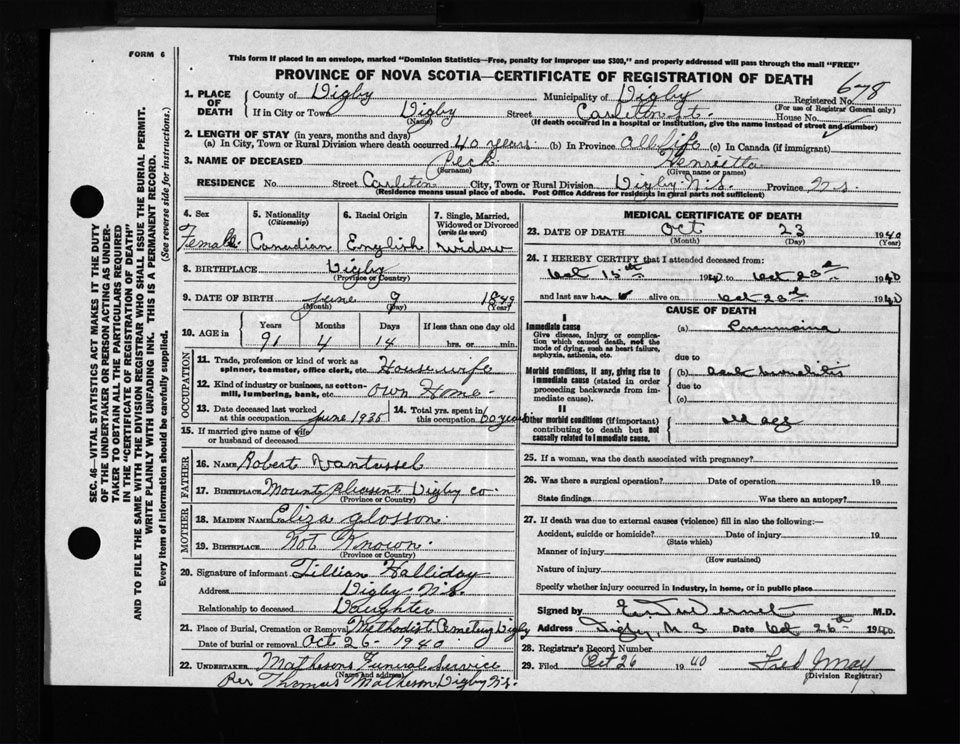 FORM 6
This form if placed in an envelope, marked "Dominion Statistics—Free, penalty for improper use $300," and properly addressed will pass through the mail "FREE"
PROVINCE OF NOVA SCOTIA—CERTIFICATE OF REGISTRATION OF DEATH
678
1. PLACE OF DEATH
County of Digby Municipality of Digby Registered No.
(For use of Registrar General only)
If in City or Town Digby Street Carleton St. House No.
(Name) (If death occurred in a hospital or institution, give the name instead of street and number)
2. LENGTH OF STAY (in years, months and days)
(a) In City, Town or Rural Division where death occurred 40 years. (b) In Province All life (c) In Canada (if immigrant)
3. NAME OF DECEASED Peck Henrietta
(Surname) (Given name or names)
RESIDENCE No. Street Carleton City, Town or Rural Division Digby N.S. Province N.S
(Residence means usual place of abode. Post Office Address for residents in rural parts not sufficient)
4. Sex
Female
5. Nationality
(Citizenship)
Canadian
6. Racial Origin
English
7. Single, Married, Widowed or Divorced
(write the word)
Widow
8. BIRTHPLACE Digby
(Province or Country)
9. DATE OF BIRTH June 9 1849
(Month) (Day) (Year)
10. AGE in
Years Months Days If less than one day old
91 4 14 hrs. or min.
OCCUPATION
11. Trade, profession or kind of work as spinner, teamster, office clerk, etc. Housewife
12. Kind of industry or business, as cotton-mill, lumbering, bank, etc. own Home.
13. Date deceased last worked at this occupation June 1935
14. Total yrs. spent in this occupation 60 years
15. If married give name of wife or husband of deceased
FATHER
16. NAME Robert Vantassel
17. BIRTHPLACE Mount Pleasant Digby co
(Province or Country)
MOTHER
18. MAIDEN NAME Eliza Glosson
19. BIRTHPLACE Not Known.
(Province or Country)
20. Signature of informant Lillian Halliday
Address Digby N.S.
Relationship to deceased Daughter
21. Place of Burial, Cremation or Removal Methodist Cemetery Digby
Date of burial or removal Oct 26 - 1940
22. UNDERTAKER Mathesons Funeral Service
(Name and address)
Per Thomas Matheson Digby N.S.
MEDICAL CERTIFICATE OF DEATH
23. DATE OF DEATH Oct 23 1940
(Month) (Day) (Year)
24. I HEREBY CERTIFY that I attended deceased from:
Oct 15th 1940 to Oct 23rd 1940
and last saw h alive on Oct 23rd 1940
CAUSE OF DEATH
I
Immediate cause
Give disease, injury or complication which caused death, not the mode of dying, such as heart failure, asphyxia, asthenia, etc.
(a) Pneumonia
due to
Morbid conditions, if any, giving rise to immediate cause (stated in order proceeding backwards from immediate cause).
(b) bronchitis
due to
(c)
II
Other morbid conditions (if important) contributing to death but not causally related to immediate cause.
Old age
25. If a woman, was the death associated with pregnancy?
26. Was there a surgical operation? Date of operation 19
State findings Was there an autopsy?
27. If death was due to external causes (violence) fill in also the following:—
Accident, suicide or homicide? Date of injury 19
(State which)
Manner of injury
(How sustained)
Nature of injury
Specify whether injury occurred in industry, in home, or in public place
Signed by M.D.
Address Digby, N S Date Oct 26th 1940
28. Registrar's Record Number
29. Filed Oct 26 1940 Fred J May
(Division Registrar)
SEC. 46—VITAL STATISTICS ACT MAKES IT THE DUTY
OF THE UNDERTAKER OR PERSON ACTING AS UNDER-
TAKER TO OBTAIN ALL THE PARTICULARS REQUIRED
IN THE "CERTIFICATE OF REGISTRATION OF DEATH"
AND TO FILE THE SAME WITH THE DIVISION REGISTRAR WHO SHALL ISSUE THE BURIAL PERMIT.
WRITE PLAINLY WITH UNFADING INK. THIS IS A PERMANENT RECORD.
Every item of information should be carefully supplied. (See reverse side for instructions.)